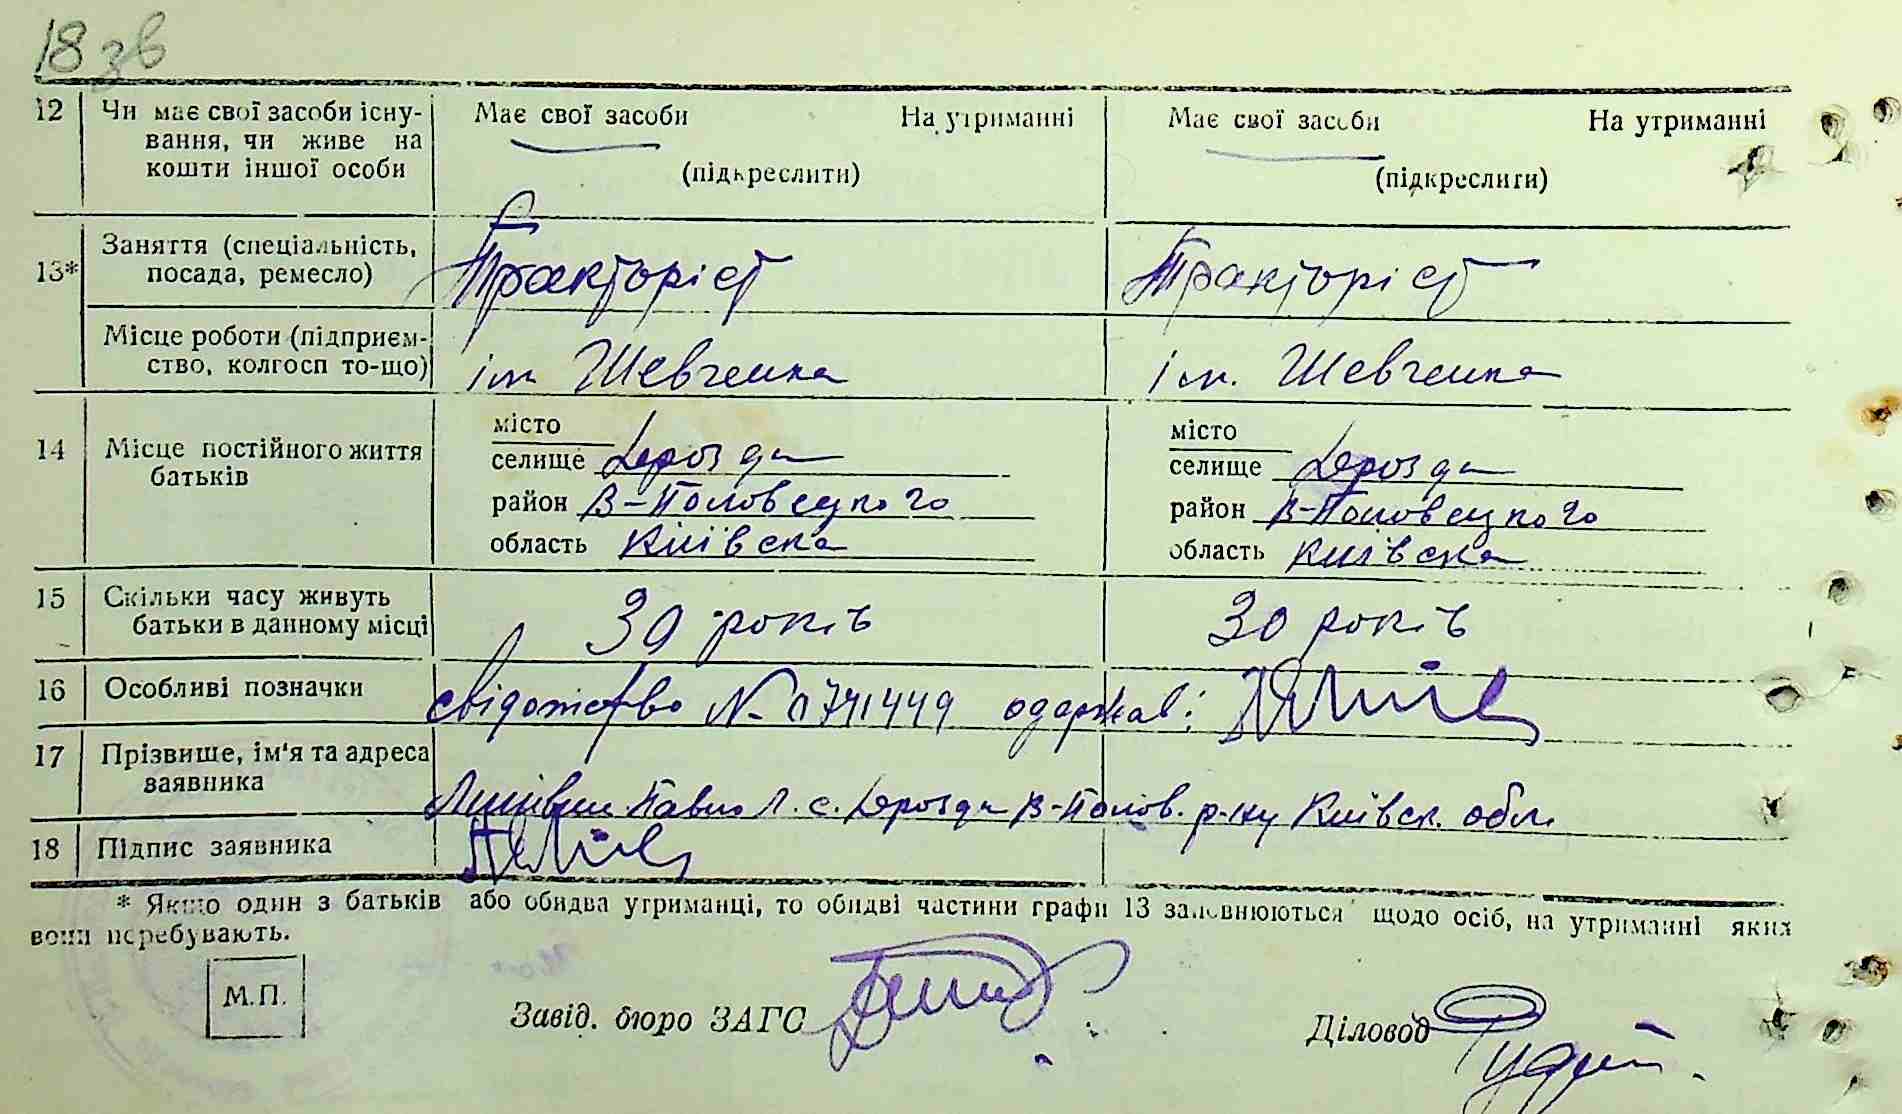 18 зв
12 Чи має свої засоби існу- Має свої засоби На утриманні Має свої засоби На утриманні
вання, чи живе на
кошти іншої особи (підкреслити) (підкреслити)
Заняття (спеціальність,
13* посада, ремесло) Тракторіст Тракторіст
Місце роботи (підприєм-
ство, колгосп то-що) ім. Шевченка ім. Шевченка
місто місто
14 Місце постійного життя селище Дрозди селище Дрозди
батьків район В-Половецького район В-Половецького
область Київска область Київска
15 Скільки часу живуть
батьки в данному місці 30 років 30 років
16 Особливі позначки свідотство № 0741449 одержав:
17 Прізвище, ім'я та адреса
заявника Павло Л. с. Дрозди В-Полов. р-ну Київск. обл.
18 Підпис заявника
* Якщо один з батьків або обидва утриманці, то обидві частини графи 13 заповнюються щодо осіб, на утриманні яких
вони перебувають.
М.П.
Завід. бюро ЗАГС Діловод